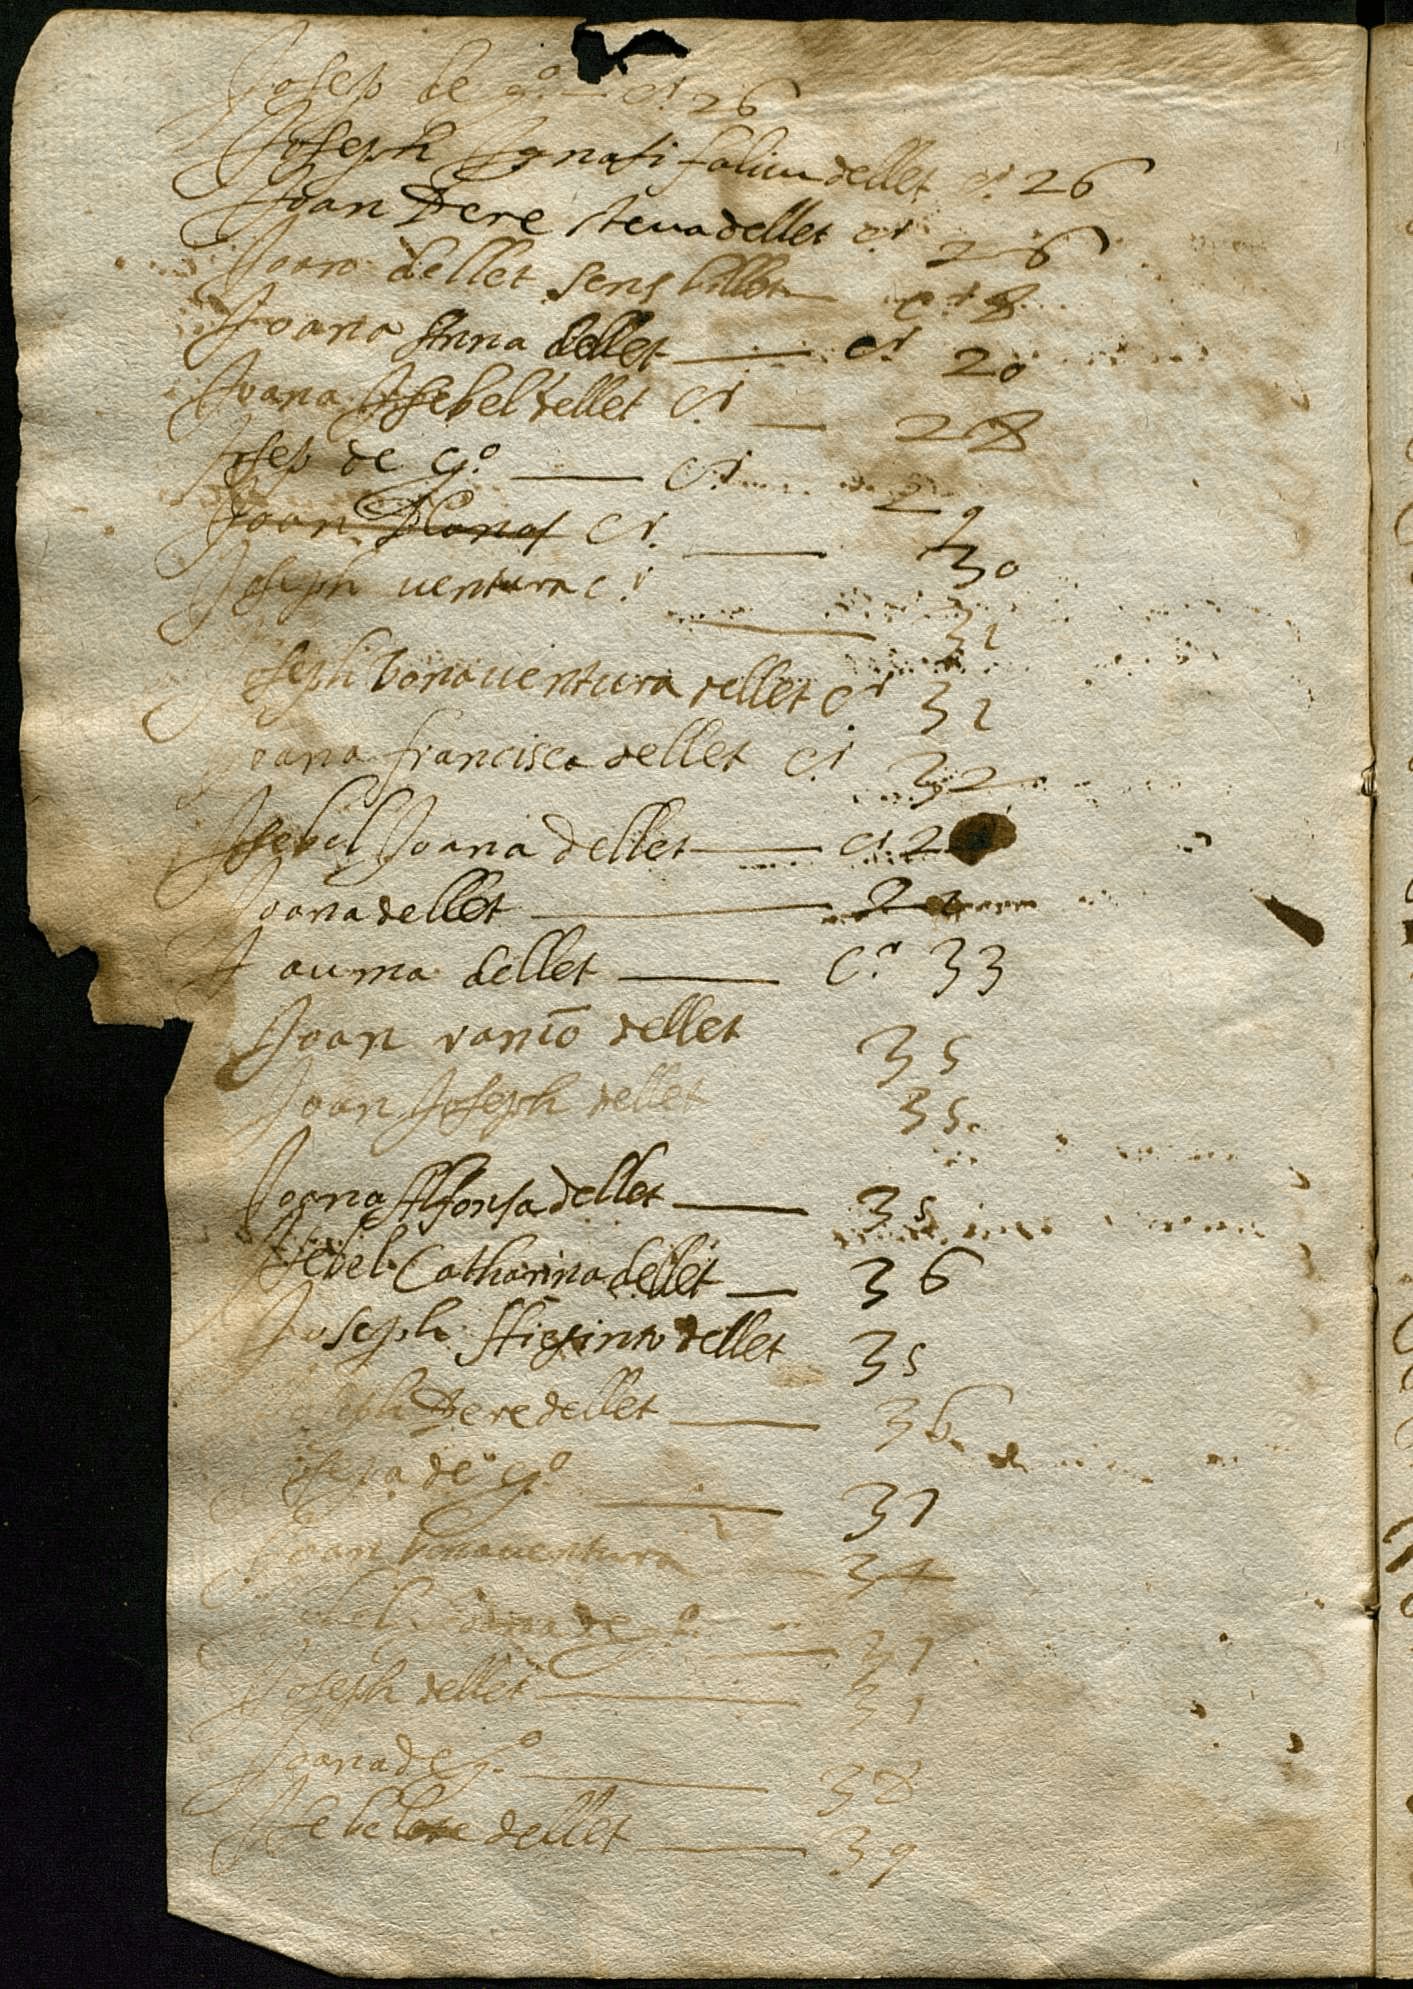 Josep de g.º — c.r 26
Joseph Ignasi dellet c.r 26
Joan Pere dellet c.r 26
Joan dellet sens billet — c.r 8
Joana Anna dellet — c.r 20
Joana Isebel dellet c.r — 28
Josep de g.º — c.r 29
Joan Planas c.r — 30
Joseph ventura c.r — 31
Joseph bonaventura dellet c.r 32
Joana francisca dellet c.r 32
Isebel Joana dellet — c.r 2
Joana dellet —
Jauma dellet — c.r 33
Joan dellet 35
Joan Joseph dellet 35
Joana Alfonsa dellet — 35
Isebel Catharina dellet — 36
Joseph dellet 35
Joseph Pere dellet — 36
Josepa de g.º — 37
Joan bonaventura — 34
de g.º — 37
Joseph dellet — 37
Joana de g.º — 38
dellet — 39